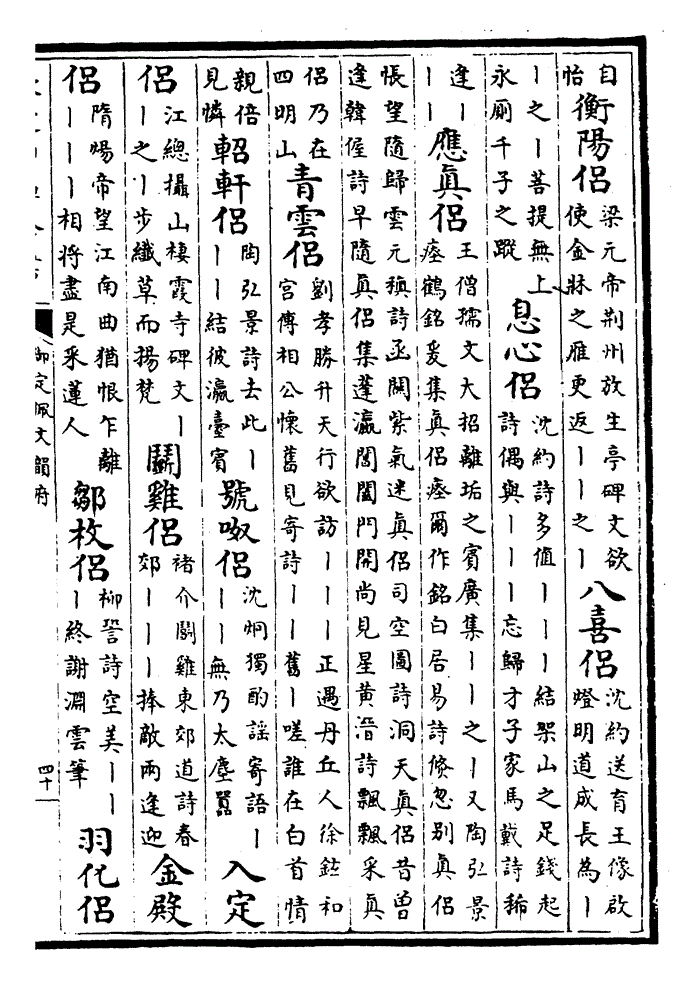 自
怡
衡陽侶
梁元帝荆州放生亭碑文欲
使金牀之雁更返丨丨之丨
八喜侶
沈約送育王像啟
燈明道成長為丨
丨之丨菩提無上
永廁千子之蹤
息心侶
沈約詩多值丨丨丨結架山之足錢起
詩偶與丨丨丨忘歸才子家馬戴詩稀
逢丨
丨丨
應眞侶
王僧孺文大招離垢之賓廣集丨丨之丨又陶弘景
瘞鶴銘爰集眞侶瘞爾作銘白居易詩倐忽别眞侶
悵望隨歸雲元稹詩函關紫氣迷眞侶司空圖詩洞天眞侶昔曽
逢韓偓詩早隨眞侶集蓬瀛閶闔門開尚見星黃滔詩飄飄采眞
侶乃在
四明山
青雲侶
劉孝勝升天行欲訪丨丨丨正遇丹丘人徐鉉和
宫傅相公懷舊見寄詩丨丨舊丨嗟誰在白首情
親倍
見憐
軺軒侶
陶弘景詩去此丨
丨丨結彼瀛臺賓
號呶侶
沈炯獨酌謡寄語丨
丨丨無乃太塵囂
入定
侶
江總攝山棲霞寺碑文丨
丨之丨步纖草而揚梵
鬭雞侶
褚介鬬雞東郊道詩春
郊丨丨丨捧敵兩逢迎
金殿
侶
隋煬帝望江南曲猶恨乍離
丨丨丨相將盡是采蓮人
鄒枚侶
柳詧詩空美丨丨
丨終謝淵雲筆
羽化侶
御定佩文韻府
四十